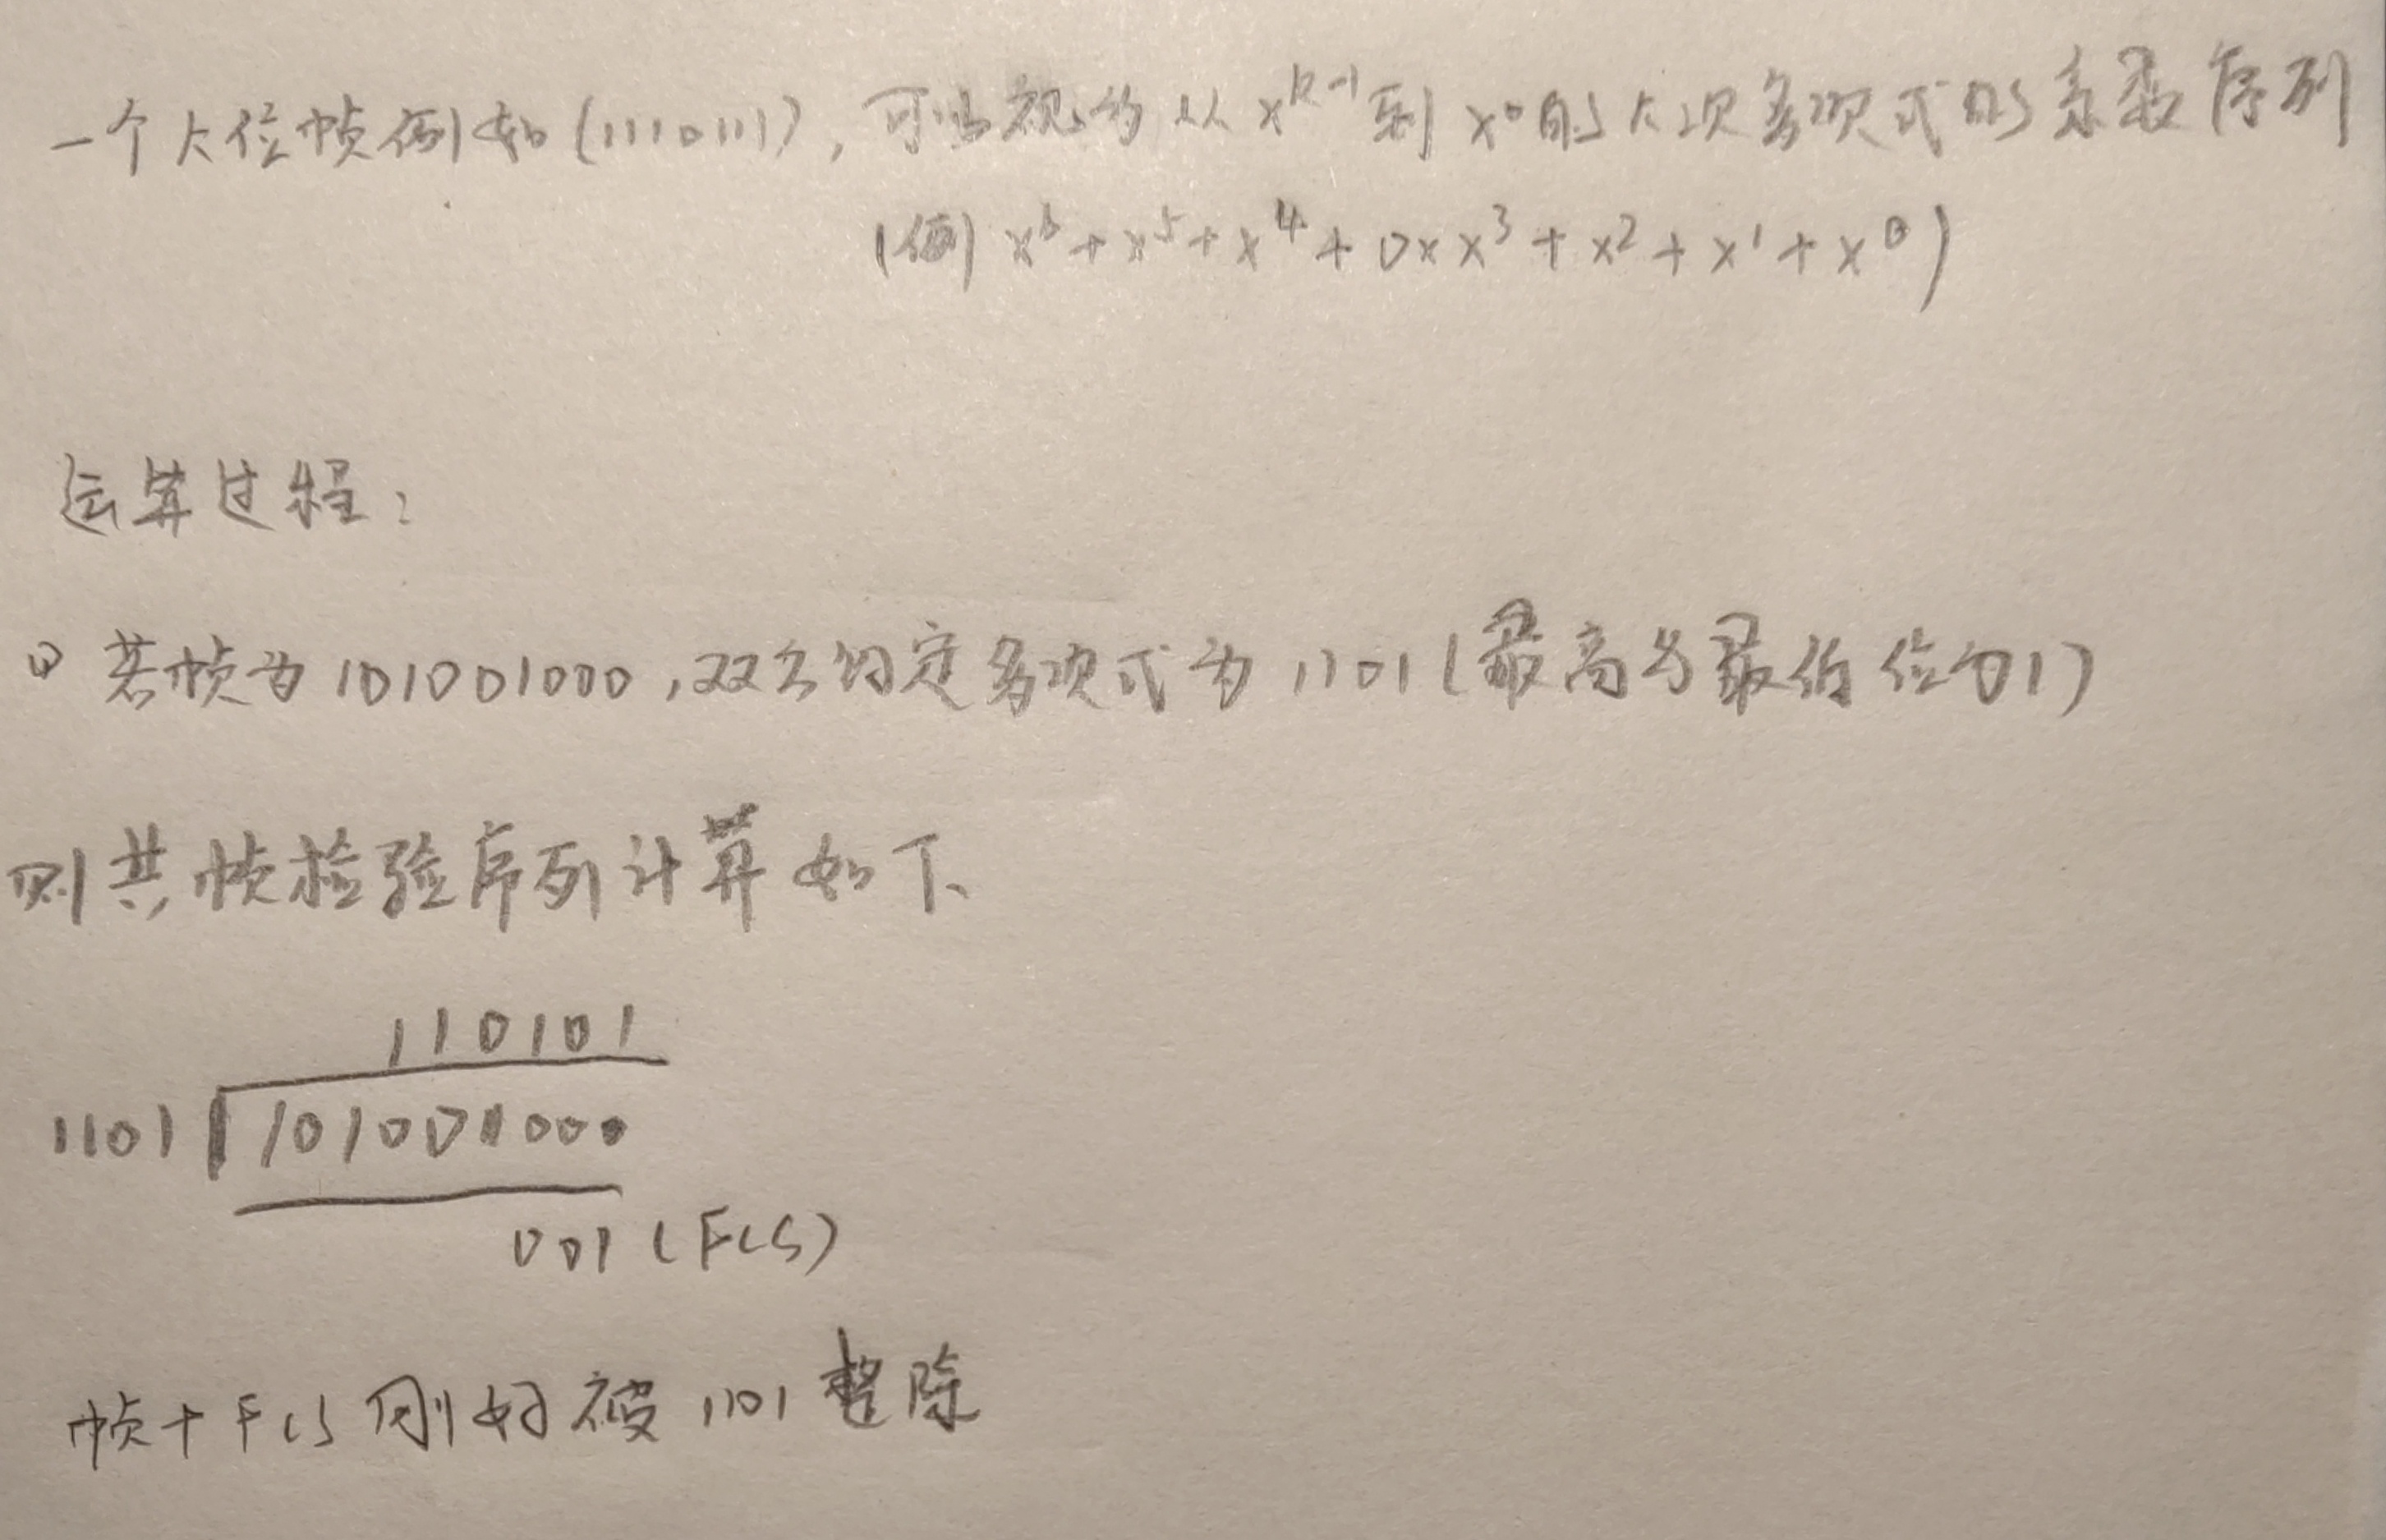 一个k位帧例如(1110111),可以视为从x^{k-1}到x^0的k次多项式的系数序列
(例 x^6+x^5+x^4+0×x^3+x^2+x^1+x^0)
运算过程:
① 若帧为101001000,双方约定多项式为1101(最高与最低位为1)
则其帧检验序列计算如下
110101
1101 101001000
001(FCS)
帧+FCS刚好被1101整除